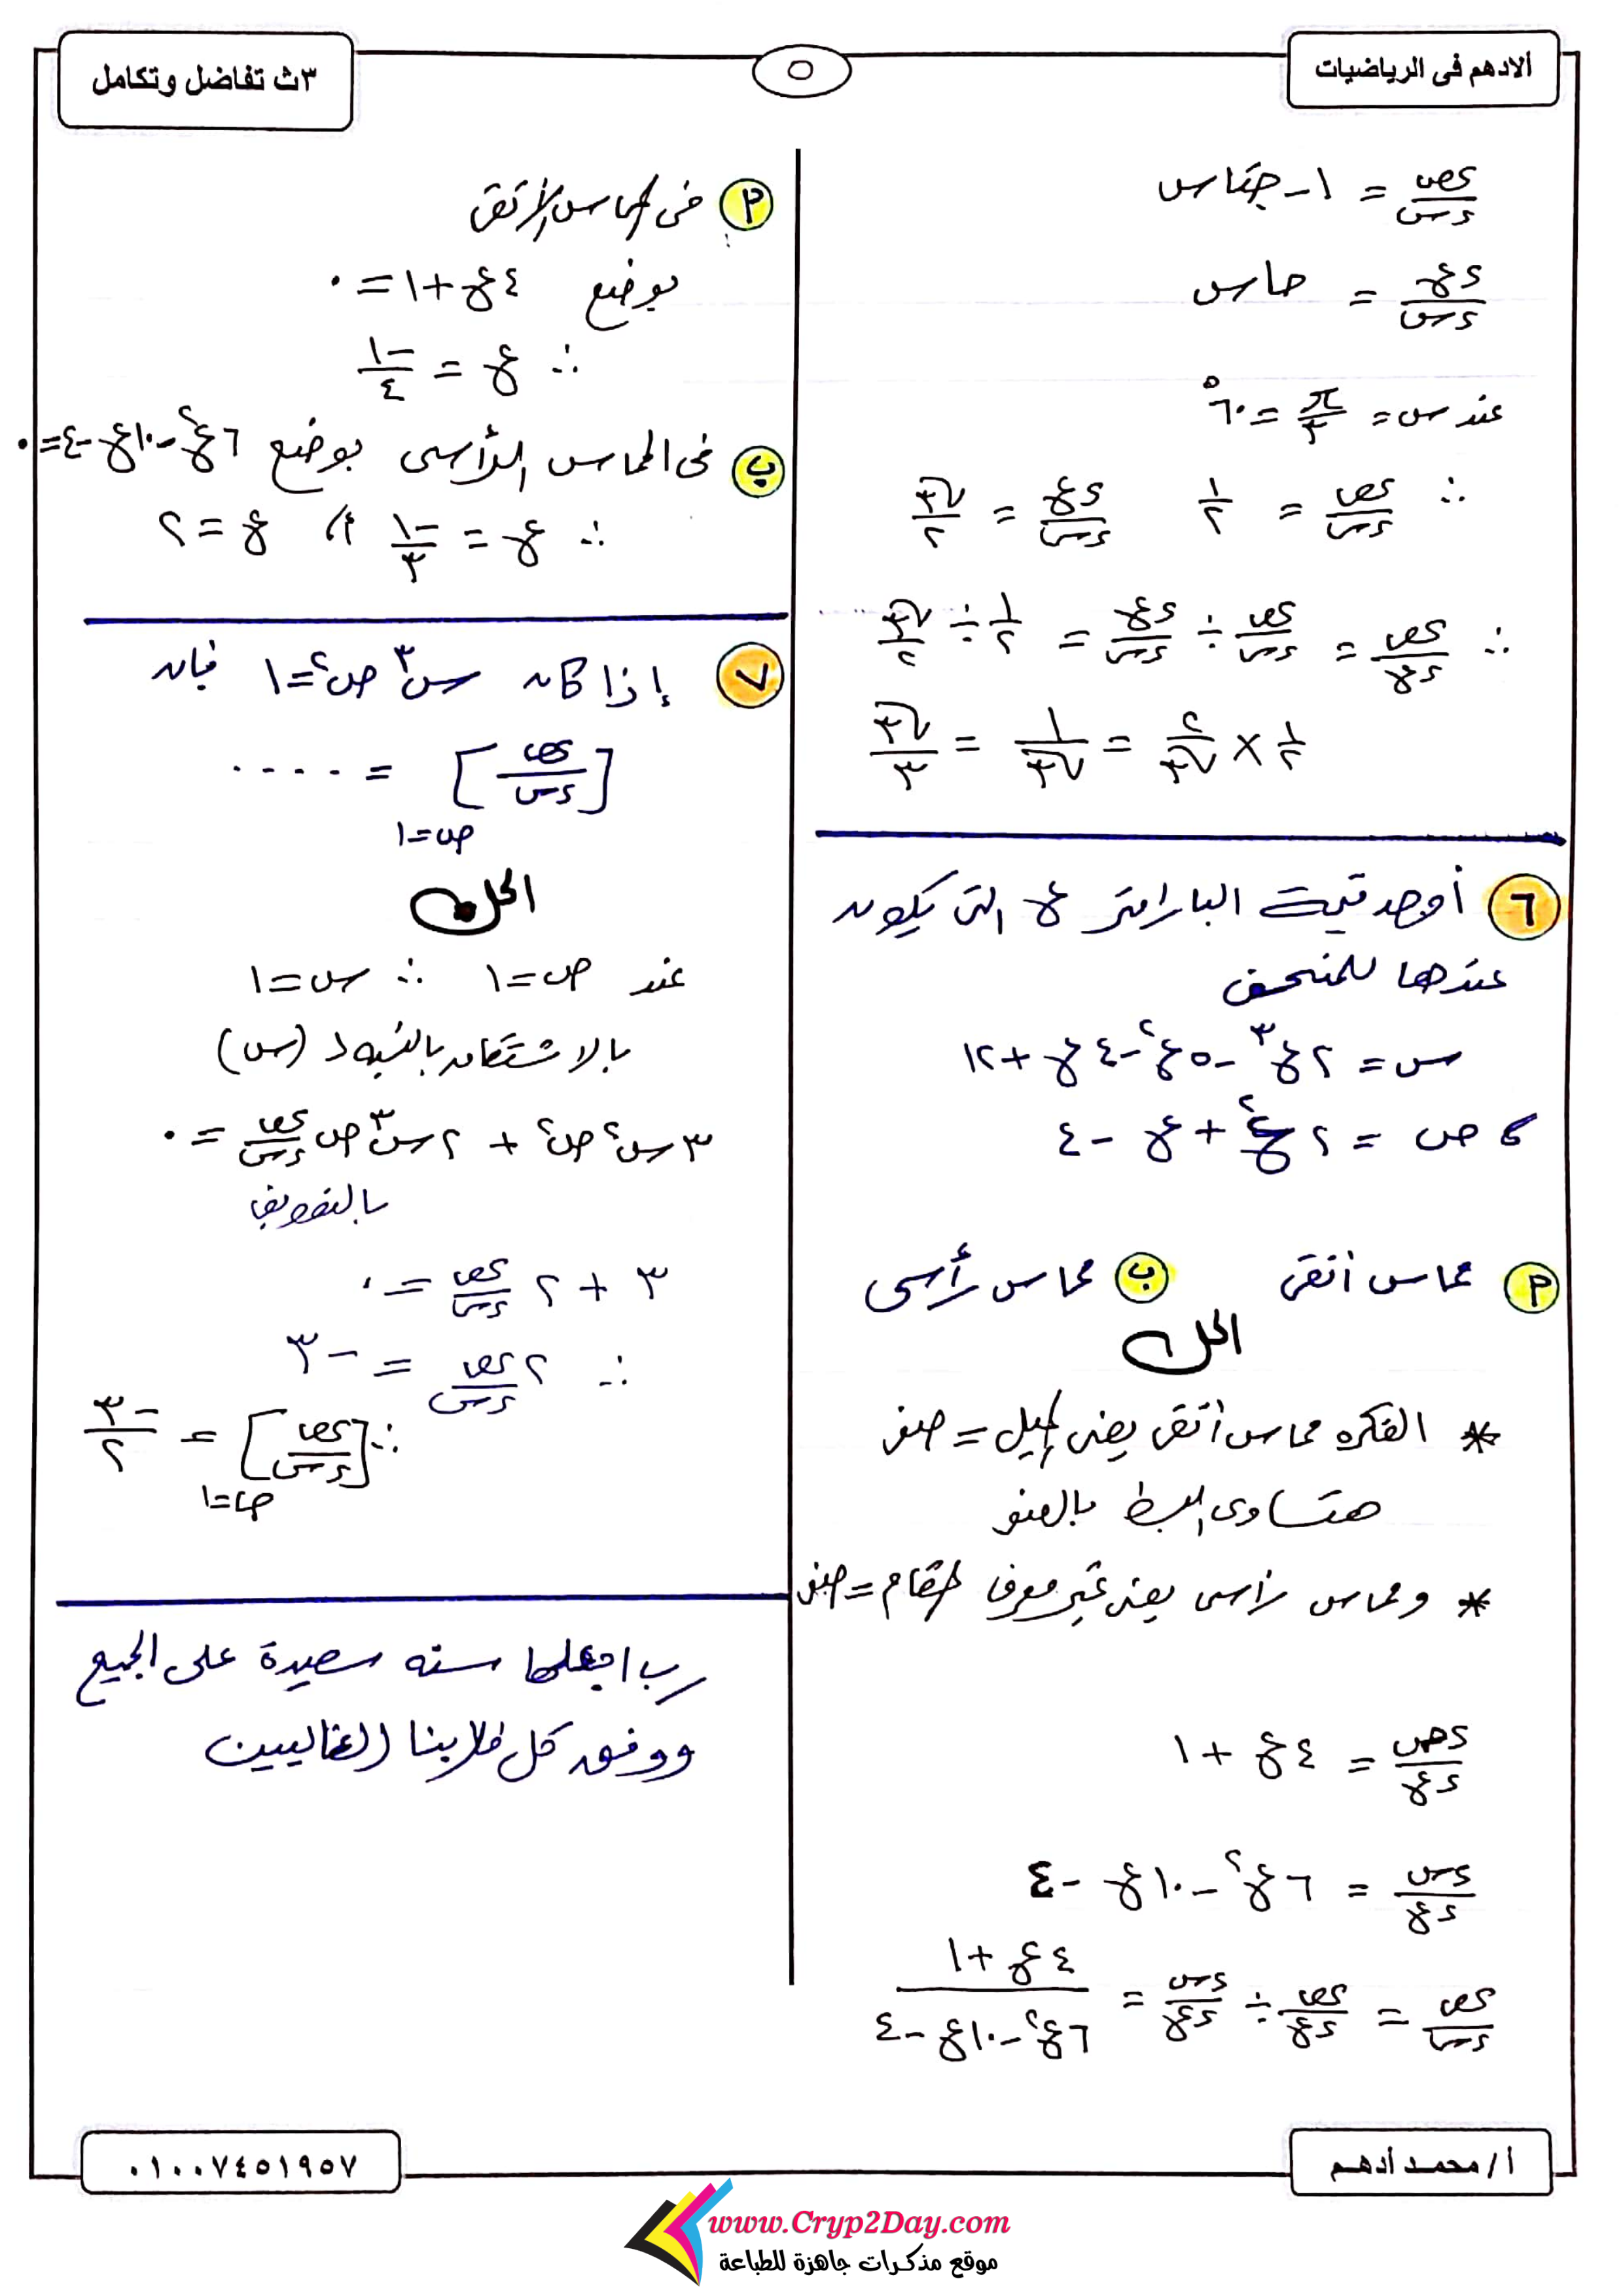 الادهم فى الرياضيات
٥
٣ث تفاضل وتكامل
ءص/ءس = ١ - جتاس
ءع/ءس = حاس
عند س = π/٣ = ٦٠°
∴ ءص/ءس = ١/٢ ءع/ءس = √٣/٢
∴ ءص/ءع = ءص/ءس ÷ ءع/ءس = ١/٢ ÷ √٣/٢
١/٢ × ٢/√٣ = ١/√٣ = √٣/٣
٦ أوجد قيمة البارامتر ع التى يكون
عندها للمنحنى
س = ٢ع³ - ٥ع² - ٤ع + ١٢
، ص = ٢ع² + ع - ٤
٢ مماس أفقى ب مماس رأسى
الحل
* الفكره مماس أفقى يعنى الميل = صفر
هتساوى البسط بالصفر
* ومماس راسى يعنى غير معرف المقام = صفر
ءص/ءع = ٤ع + ١
ءس/ءع = ٦ع² - ١٠ع - ٤
ءص/ءس = ءص/ءع ÷ ءس/ءع = (٤ع + ١)/(٦ع² - ١٠ع - ٤)
٢ فى المماس الأفقى
بوضع ٤ع + ١ = ٠
∴ ع = -١/٤
ب فى المماس الرأسى بوضع ٦ع² - ١٠ع - ٤ = ٠
∴ ع = -١/٣ أ، ع = ٢
٧ إذا كان س³ ص² = ١ فإن
[ءص/ءس] ص=١ = ....
الحل
عند ص = ١ ∴ س = ١
بالاشتقاق بالنسبة لـ (س)
٣س² ص² + ٢س³ ص ءص/ءس = ٠
بالتعويض
٣ + ٢ ءص/ءس = ٠
∴ ٢ ءص/ءس = -٣
∴ [ءص/ءس] ص=١ = -٣/٢
رب اجعلها سنه سعيدة على الجميع
ووفق كل طلابنا الغاليين
أ/ محمد أدهم
٠١٠٠٧٤٥١٩٥٧
www.Cryp2Day.com
موقع مذكرات جاهزة للطباعة